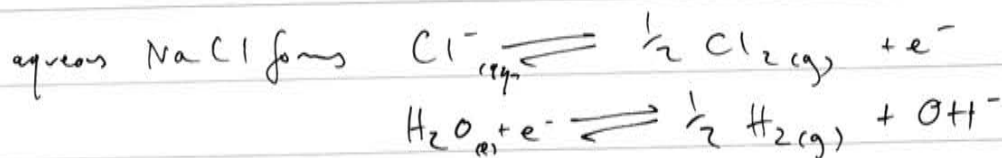 aqueous NaCl forms Cl⁻(aq) ⇌ ½ Cl₂(g) + e⁻
H₂O(l) + e⁻ ⇌ ½ H₂(g) + OH⁻